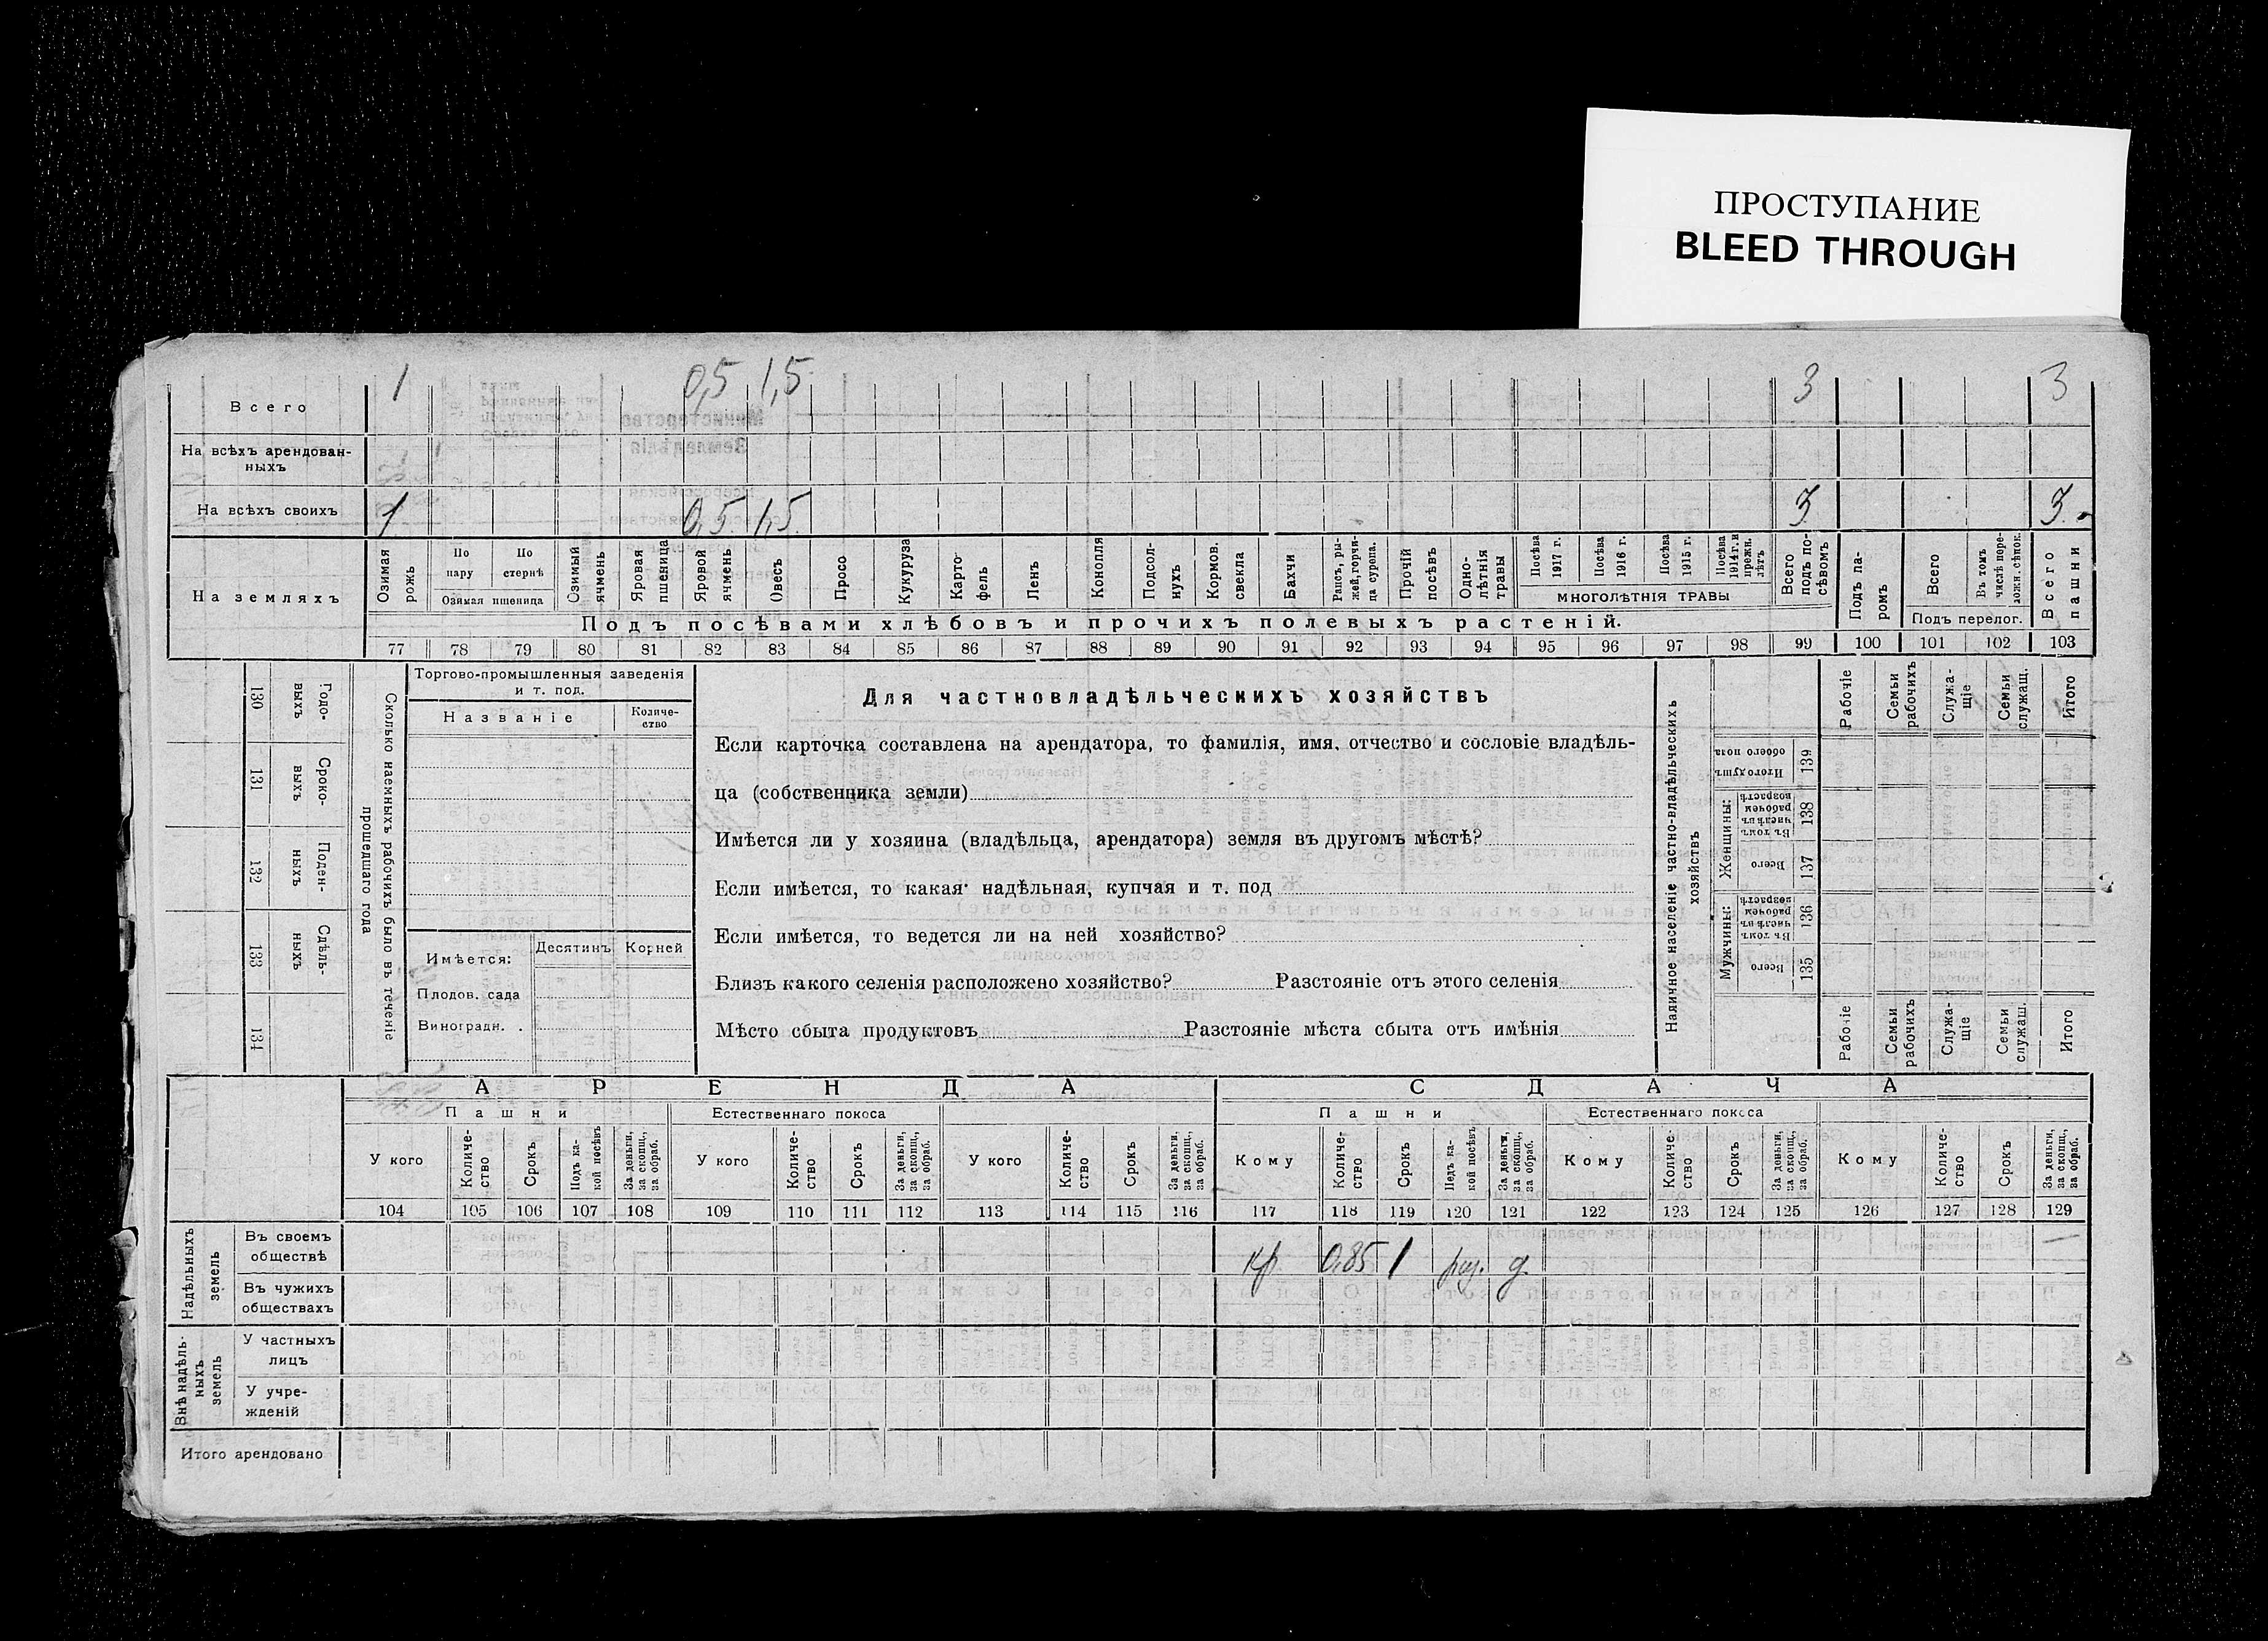 ПРОСТУПАНИЕ
BLEED THROUGH
1 0,5 1,5 3 3
Всего
На всѣхъ арендован-
ныхъ
На всѣхъ своихъ 1 0,5 1,5 3 3
На земляхъ
Озимая рожь
По пару
По стернѣ
Озимая пшеница
Озимый ячмень
Яровая пшеница
Яровой ячмень
Овесъ
Просо
Кукуруза
Карто-
фель
Ленъ
Конопля
Подсол-
нухъ
Кормов. свекла
Бахчи
Рапсъ, ры-
жей, горчи-
ца сурепа.
Прочій посѣвъ
Одно-
лѣтнія травы
Посѣва 1917 г.
Посѣва 1916 г.
Посѣва 1915 г.
Посѣва 1914 г. и прежн. лѣтъ
МНОГОЛѢТНІЯ ТРАВЫ
Всего подъ по-
сѣвомъ
Подъ па-
ромъ
Всего
Въ томъ числѣ пере-
ложн. сѣнок.
Подъ перелог.
Всего пашни
Подъ посѣвами хлѣбовъ и прочихъ полевыхъ растеній.
77 78 79 80 81 82 83 84 85 86 87 88 89 90 91 92 93 94 95 96 97 98 99 100 101 102 103
130 Годо-
выхъ
131 Сроко-
выхъ
132 Поден-
ныхъ
133 Сдѣль-
ныхъ
134
Сколько наемныхъ рабочихъ было въ теченіе
прошедшаго года
Торгово-промышленныя заведенія
и т. под.
Названіе
Количе-
ство
Имѣется: Десятинъ Корней
Плодов. сада
Виноградн. .
Для частновладѣльческихъ хозяйствъ
Если карточка составлена на арендатора, то фамилія, имя, отчество и сословіе владѣль-
ца (собственника земли)
Имѣется ли у хозяина (владѣльца, арендатора) земля въ другомъ мѣстѣ?
Если имѣется, то какая: надѣльная, купчая и т. под
Если имѣется, то ведется ли на ней хозяйство?
Близъ какого селенія расположено хозяйство? Разстояніе отъ этого селенія
Мѣсто сбыта продуктовъ Разстояніе мѣста сбыта отъ имѣнія
Наличное населеніе частно-владѣльческихъ
хозяйствъ
Итого душъ обоего пола 139
Женщины:
Въ томъ числѣ въ рабочем возрастѣ 138
Всего 137
Мужчины:
Въ томъ числѣ въ рабочем возрастѣ 136
Всего 135
Рабочіе
Семьи рабочихъ
Служа-
щіе
Семьи служащ.
Итого
Рабочіе
Семьи рабочихъ
Служа-
щіе
Семьи служащ.
Итого
АРЕНДА СДАЧА
Пашни Естественнаго покоса Пашни Естественнаго покоса
У кого
Количе-
ство
Срокъ
Подъ ка-
кой посѣвъ
За деньги, за скопщ., за обраб.
У кого
Количе-
ство
Срокъ
За деньги, за скопщ., за обраб.
У кого
Количе-
ство
Срокъ
За деньги, за скопщ., за обраб.
Кому
Количе-
ство
Срокъ
Подъ ка-
кой посѣвъ
За деньги, за скопщ., за обраб.
Кому
Количе-
ство
Срокъ
За деньги, за скопщ., за обраб.
Кому
Количе-
ство
Срокъ
За деньги, за скопщ., за обраб.
104 105 106 107 108 109 110 111 112 113 114 115 116 117 118 119 120 121 122 123 124 125 126 127 128 129
Надѣльныхъ
земель
Въ своемъ
обществѣ
Кр 0,85 1 раз. д.
Въ чужихъ
обществахъ
Внѣ надѣль-
ныхъ
земель
У частныхъ
лицъ
У учре-
жденій
Итого арендовано